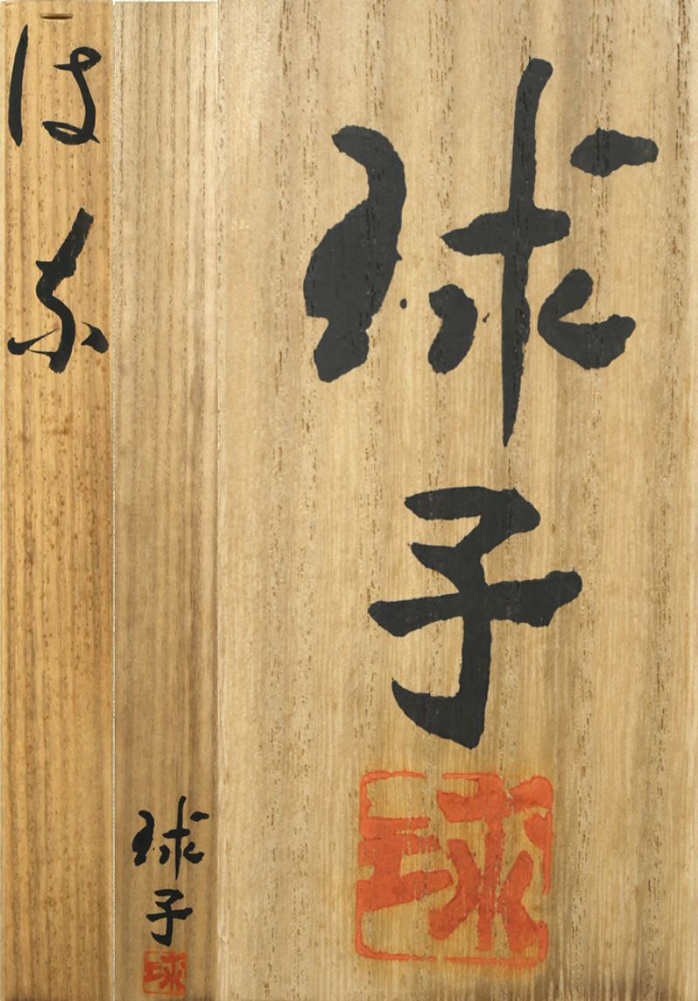 はな
球子
球
球子
球